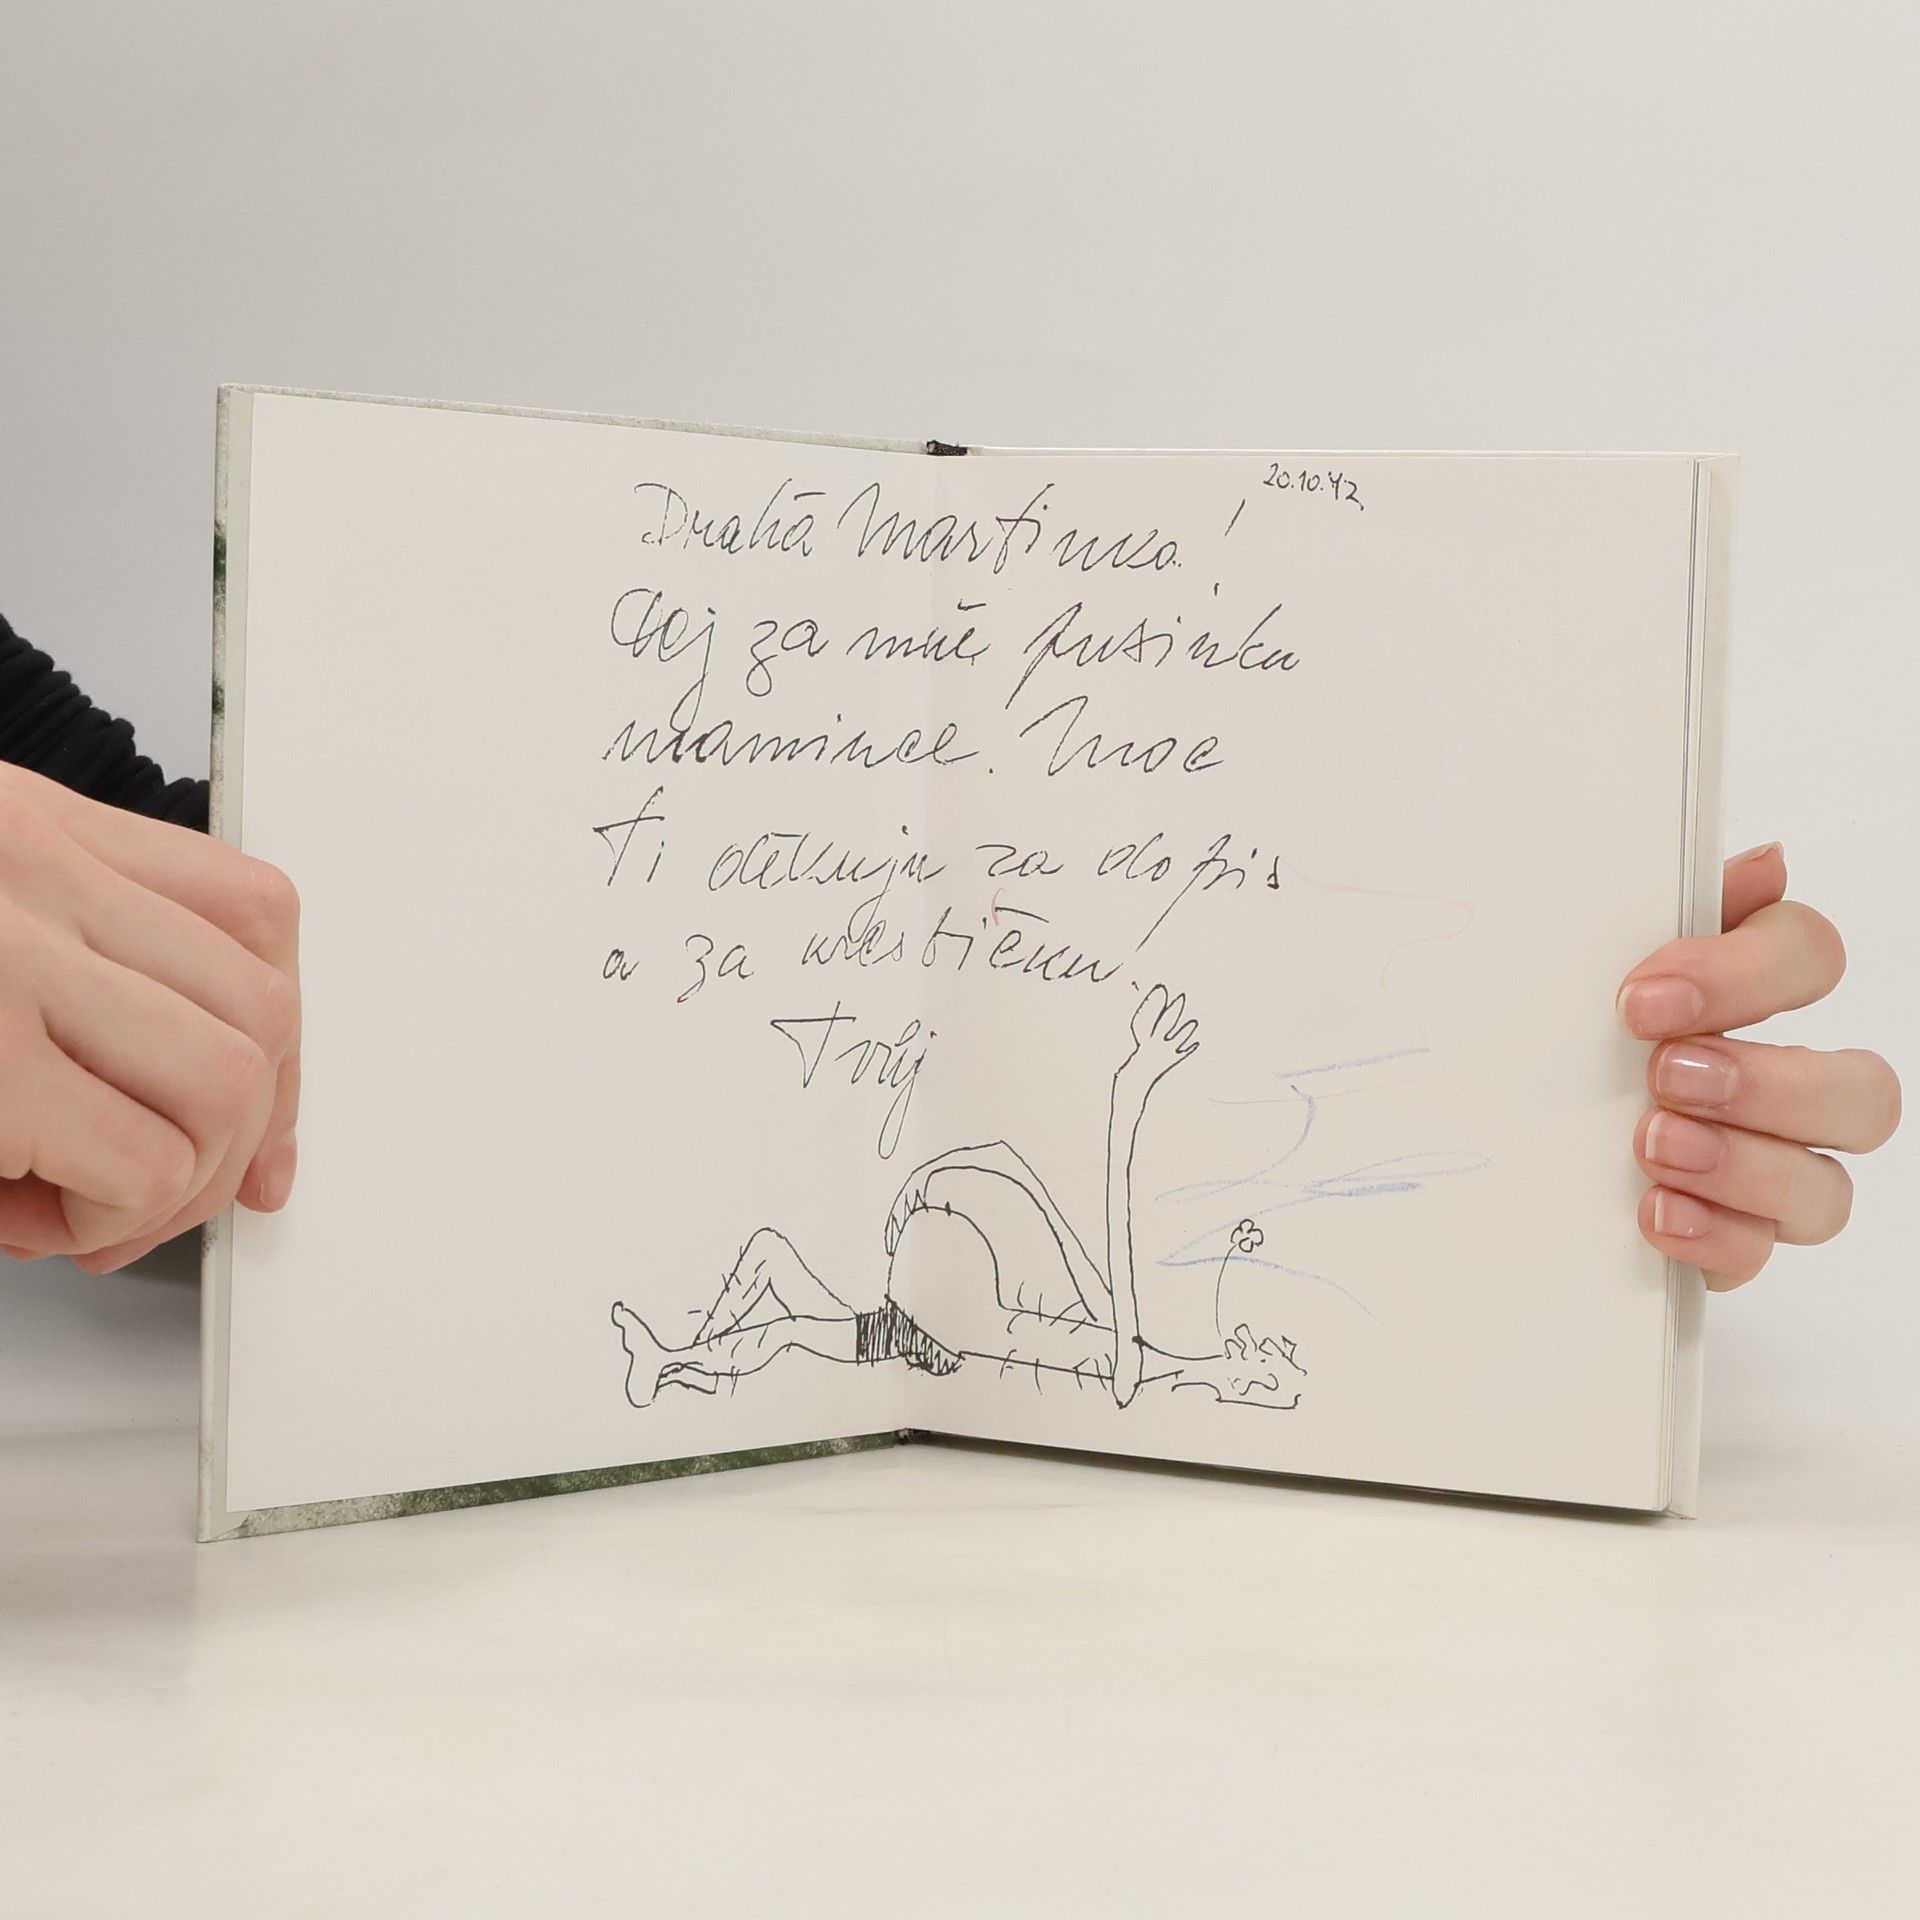 20.10.92
Drahá Martinko!
Dej za mně pusinku
mamince. Moc
Ti děkuju za dopis
a za
Tvůj